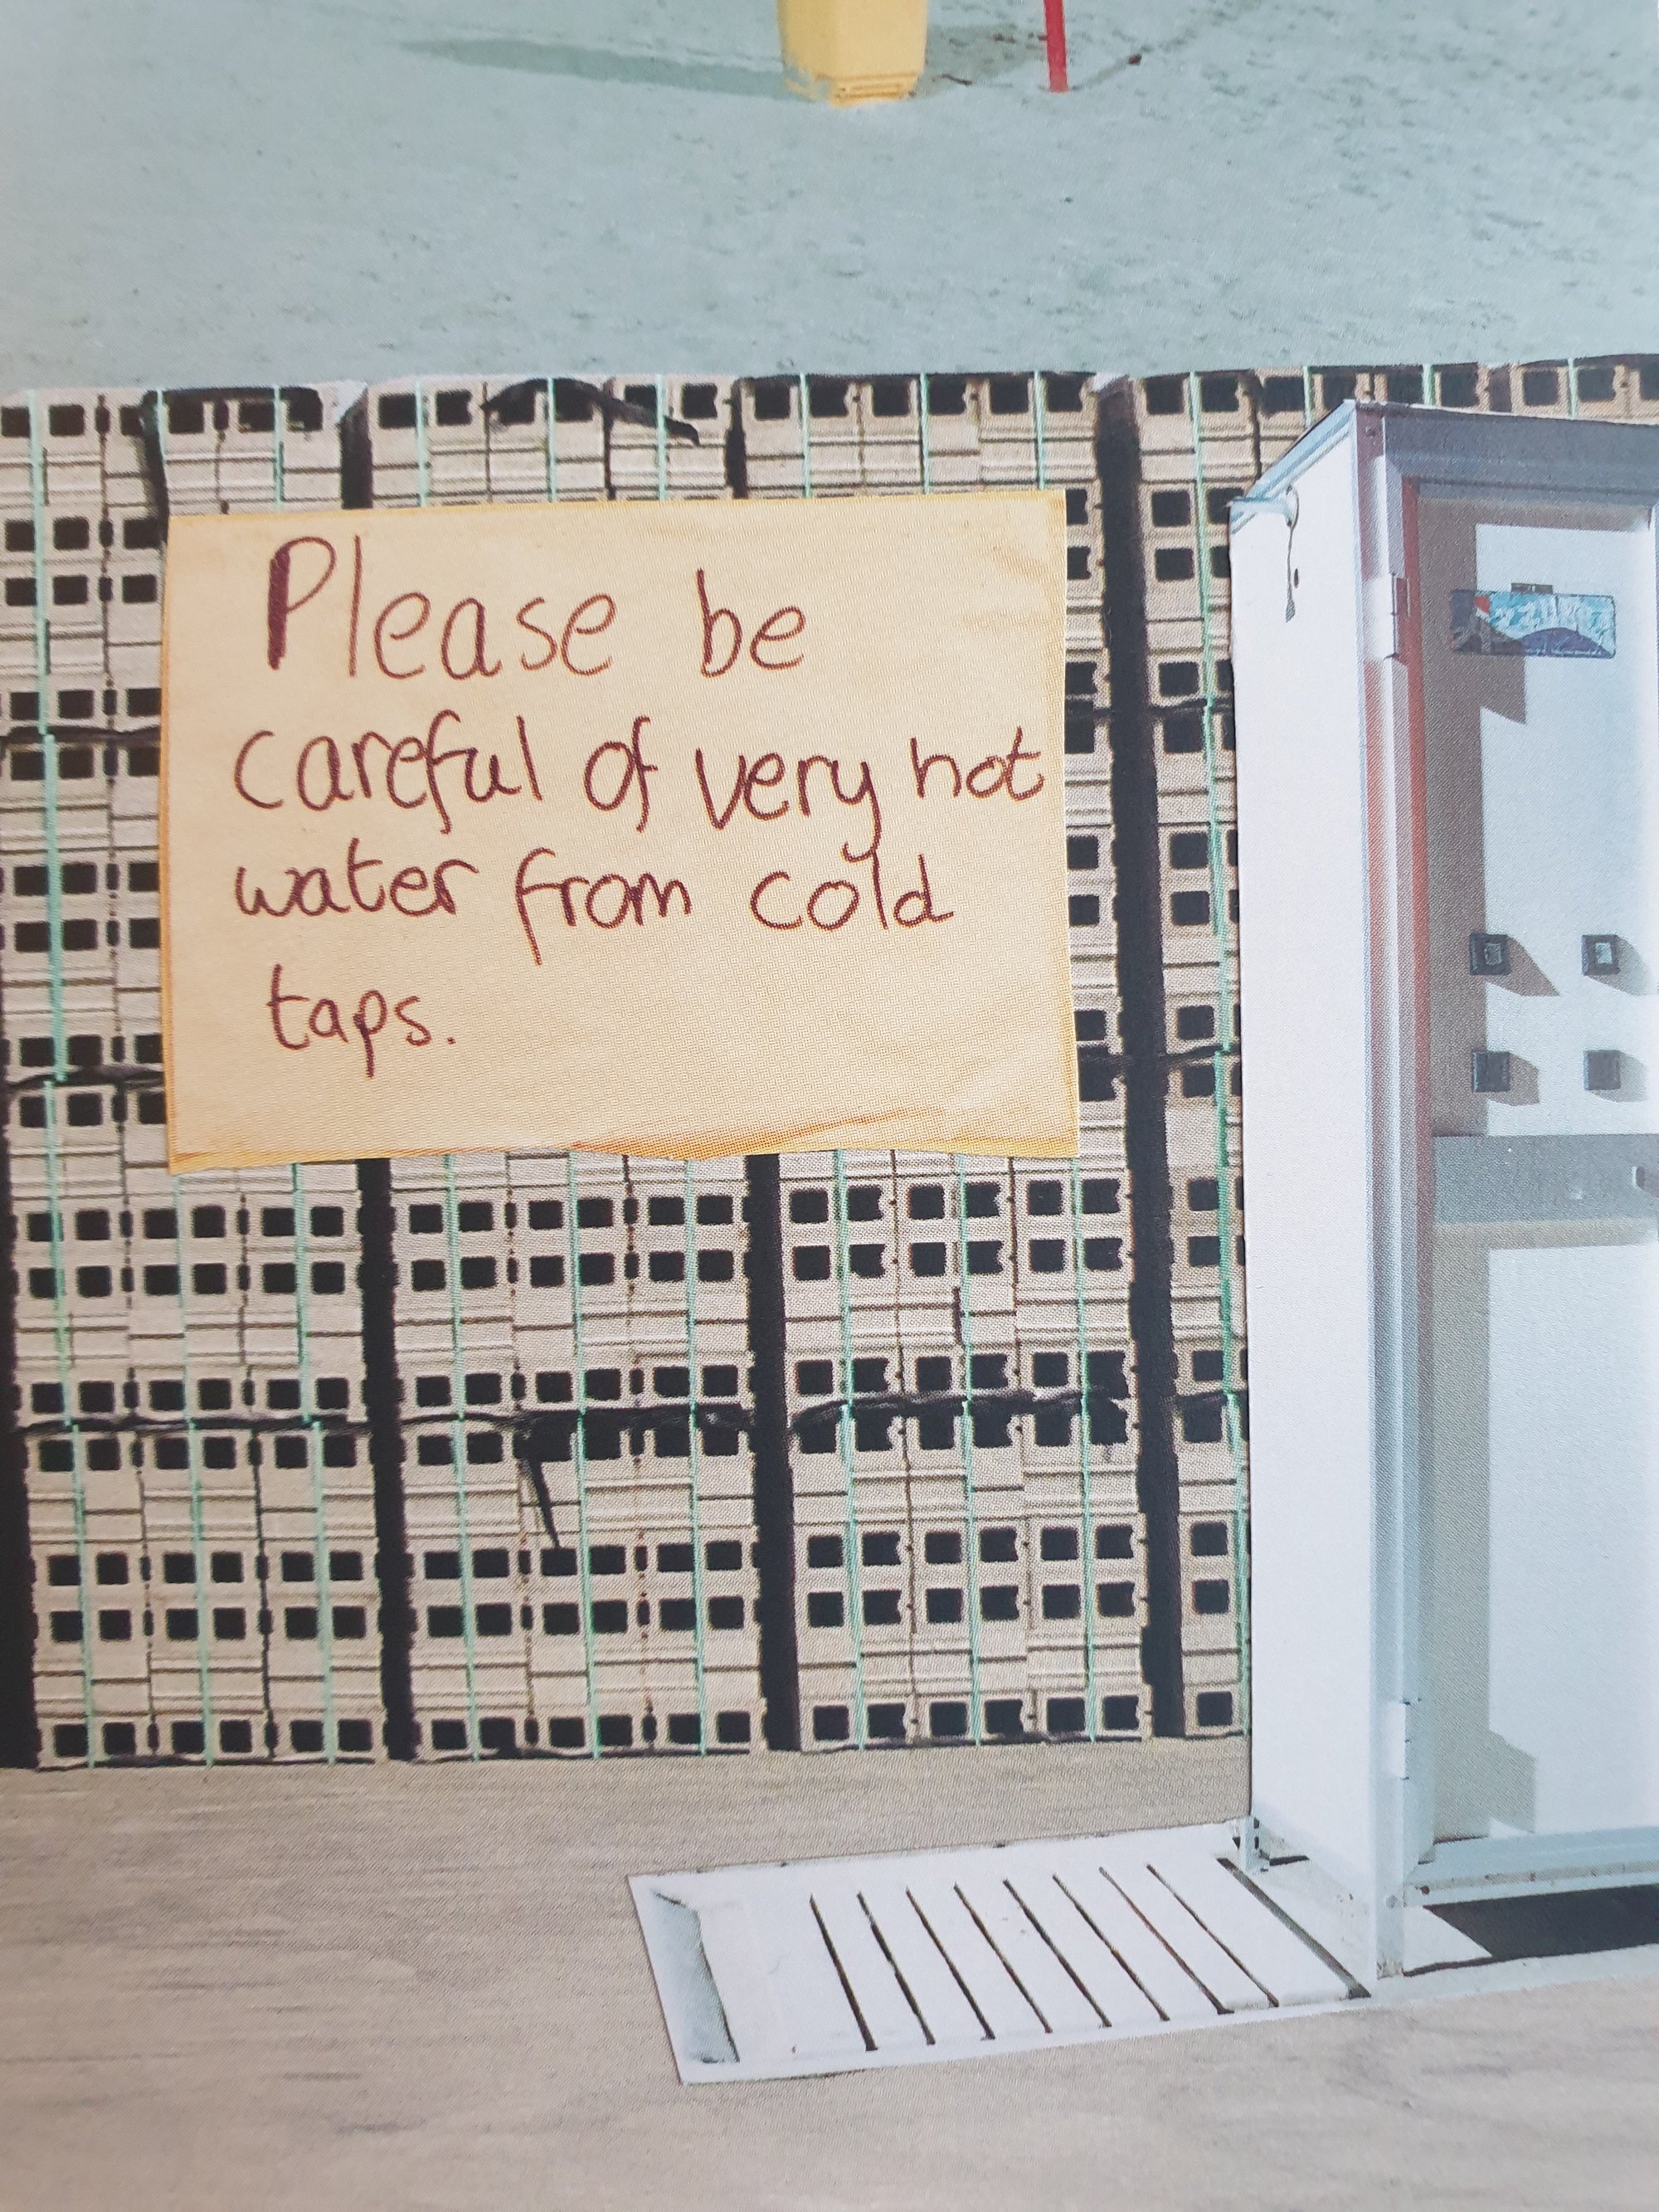 Please be
careful of very hot
water from cold
taps.